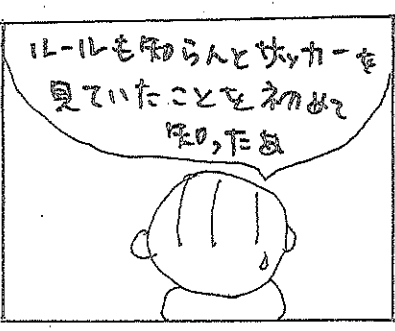 ルールも知らんとサッカーを
見ていたことを初めて
知ったあ